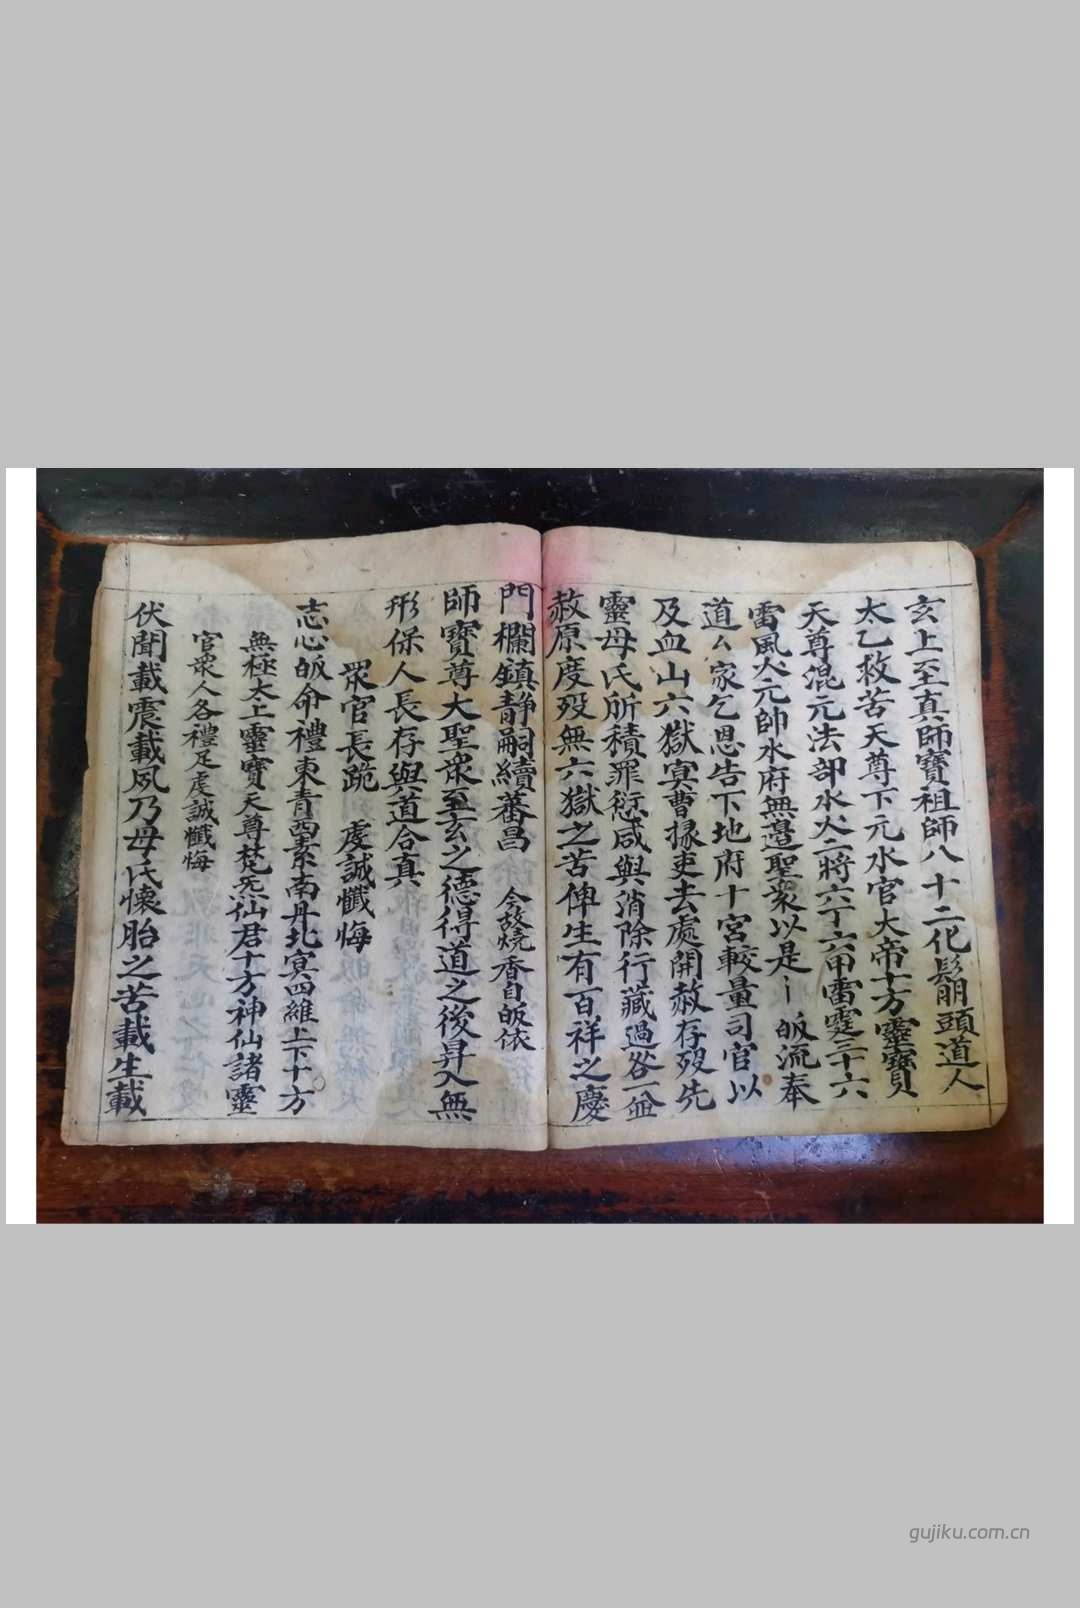 玄上至真師寶祖師八十二化鬅頭道人
太乙救苦天尊下元水官大帝十方靈寶
天尊混元法部水火二將六丁六甲雷霆三十六
雷風火元帥水府無邉聖衆以是丨 皈流奉
道厶家乞恩告下地府十宮較量司官以
及血山六獄冥曹掾吏去處開赦存歿先
靈母氏所積罪愆咸與消除行藏過咎一並
赦原度歿無六獄之苦俾生有百祥之慶
門欄鎮静嗣續蕃昌 今故燒香自皈依
師寶尊大聖衆至玄之德得道之後昇入無
形保人長存與道合真
衆官長跪 虔誠懺悔
志心皈命禮東青西素南丹北冥四維上下十方
無極太上靈寶天尊梵炁仙君十方神仙諸靈
官衆人各禮足虔誠懺悔
伏聞載震載夙乃母氏懷胎之苦載生載
gujiku.com.cn